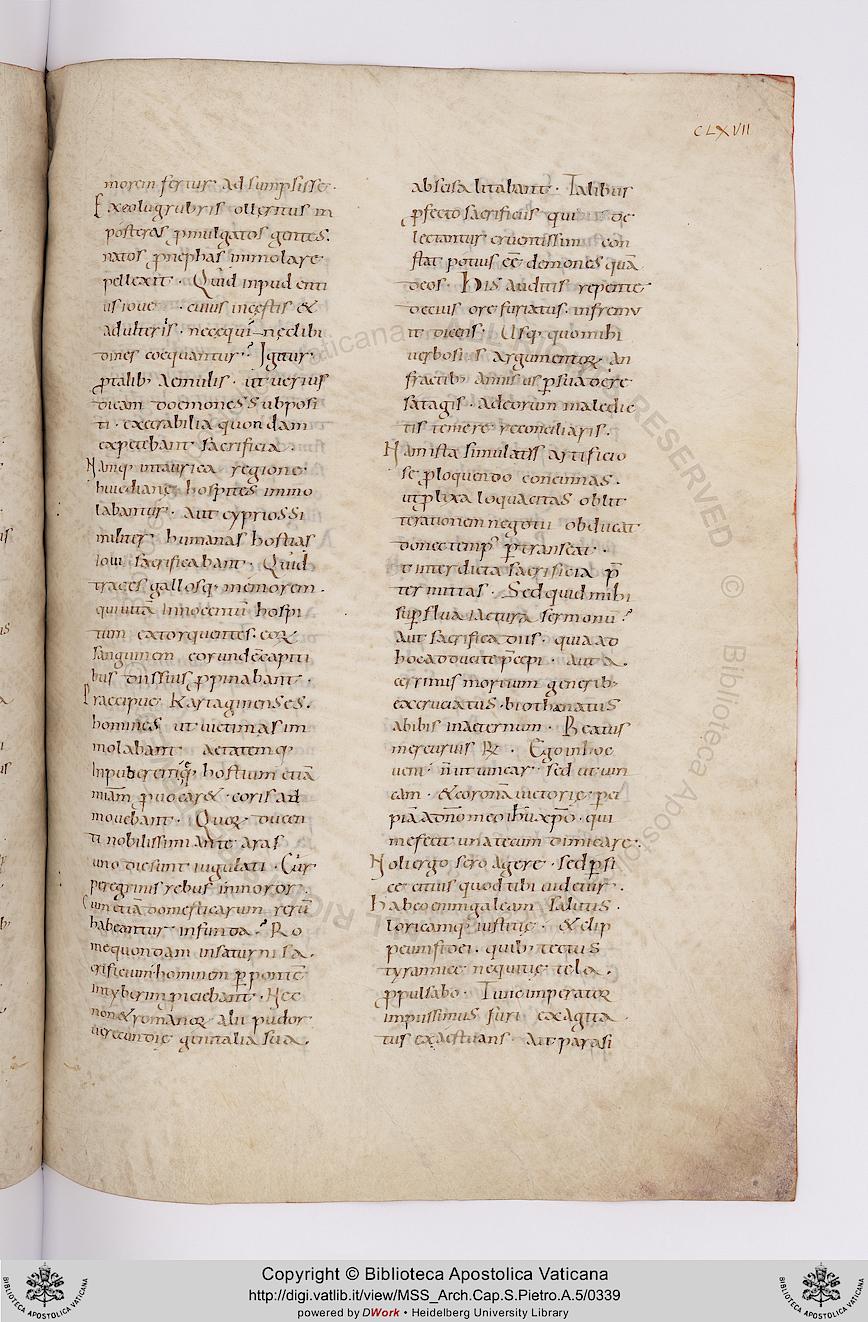 CLXVII
morem fertur adsumpsisse·
Exeolugubris olleritus in
posteras ꝓmulgatos gentes.
natos ꝓnephas immolare·
pellexit · Quid inpudenti
us ioue · cuius incestis &
adulteris · necequi nęclibi
dines coequantur? Igitur
dicam doemones subposi
ti · execrabilia quondam
expetebant sacrificia ·
Namq; intaurica regione·
huiedianę hospites immo
labantur · aut cypriossi
militer humanas hostias
Ioui sacrificabant · Quid
traces gallosq; memorem ·
quiuitā innocentū hospi
tum extorquentes · eoꝝ
sanguinem
bus ꝓpinabant ·
Praecipue Kartaginenses.
homines ut uictimas im
molabant aetatemq;
hostium etiā
miām ꝓuocar& · eoris ad
mouebant · Quoꝝ ducen
ti nobilissimi ante aras
uno die sunt iugulati · Cur
peregrinis rebus inmoror ·
Cum etiā domesticarum rerū
habeantur infunda? Ro
mequondam insaturni sa
crificium hominem p̱ pontē
intyberim ꝓiciebant · Hec
non & romanoꝝ alii pudor
uerecundię genitalia sua ·
abscisa litabant · Talibus
ꝓfecto sacrificiis qui de
lectantur cruentissimi con
stat potius eē demones quā
deos · His auditis repente
decius ore furiatus · infremu
it dicens · Usq; quo mihi
uerbosius argumentoꝝ an
fractib; annisus p̱suadere
satagis · adeorum maledic
tis temere reconciliaris.
Nam ista simulatis artificio
se ꝓloquendo concinnas ·
ut ꝓlixa loquacitas oblit
terationem negotii obducat
donec temp' p̱transeat ·
et interdicta sacrificia p̄
termittas · Sed quid mihi
sup̱flua iactura sermonū?
Aut sacrifica diis · quia ad
hoc adducite p̄cepi · aut a
cerrimus mortium generib;
excruciatus · biothanatus
abibis inaeternum · Beatus
mercurius R̷ · Ego in hoc
ueni n̄ ut uincar · sed ut uin
cam · & coronā uictorię · p̱ci
piā adn̄o meo ih̄u xp̄o · qui
me fecit una tecum dimicare ·
Noli ergo sero agere · sed p̱fi
ce citius quod tibi uidetur ·
Habeo enim galeam salutis ·
loricamq; iustitię · & clip
peum fidei · quib; tectus
tyrannice nequitię tela ·
ꝓpulsabo · Tunc imperator
impiissimus furi exagita
tus exaestuans · Ait parasi
Copyright © Biblioteca Apostolica Vaticana
http://digi.vatlib.it/view/MSS_Arch.Cap.S.Pietro.A.5/0339
powered by DWork • Heidelberg University Library